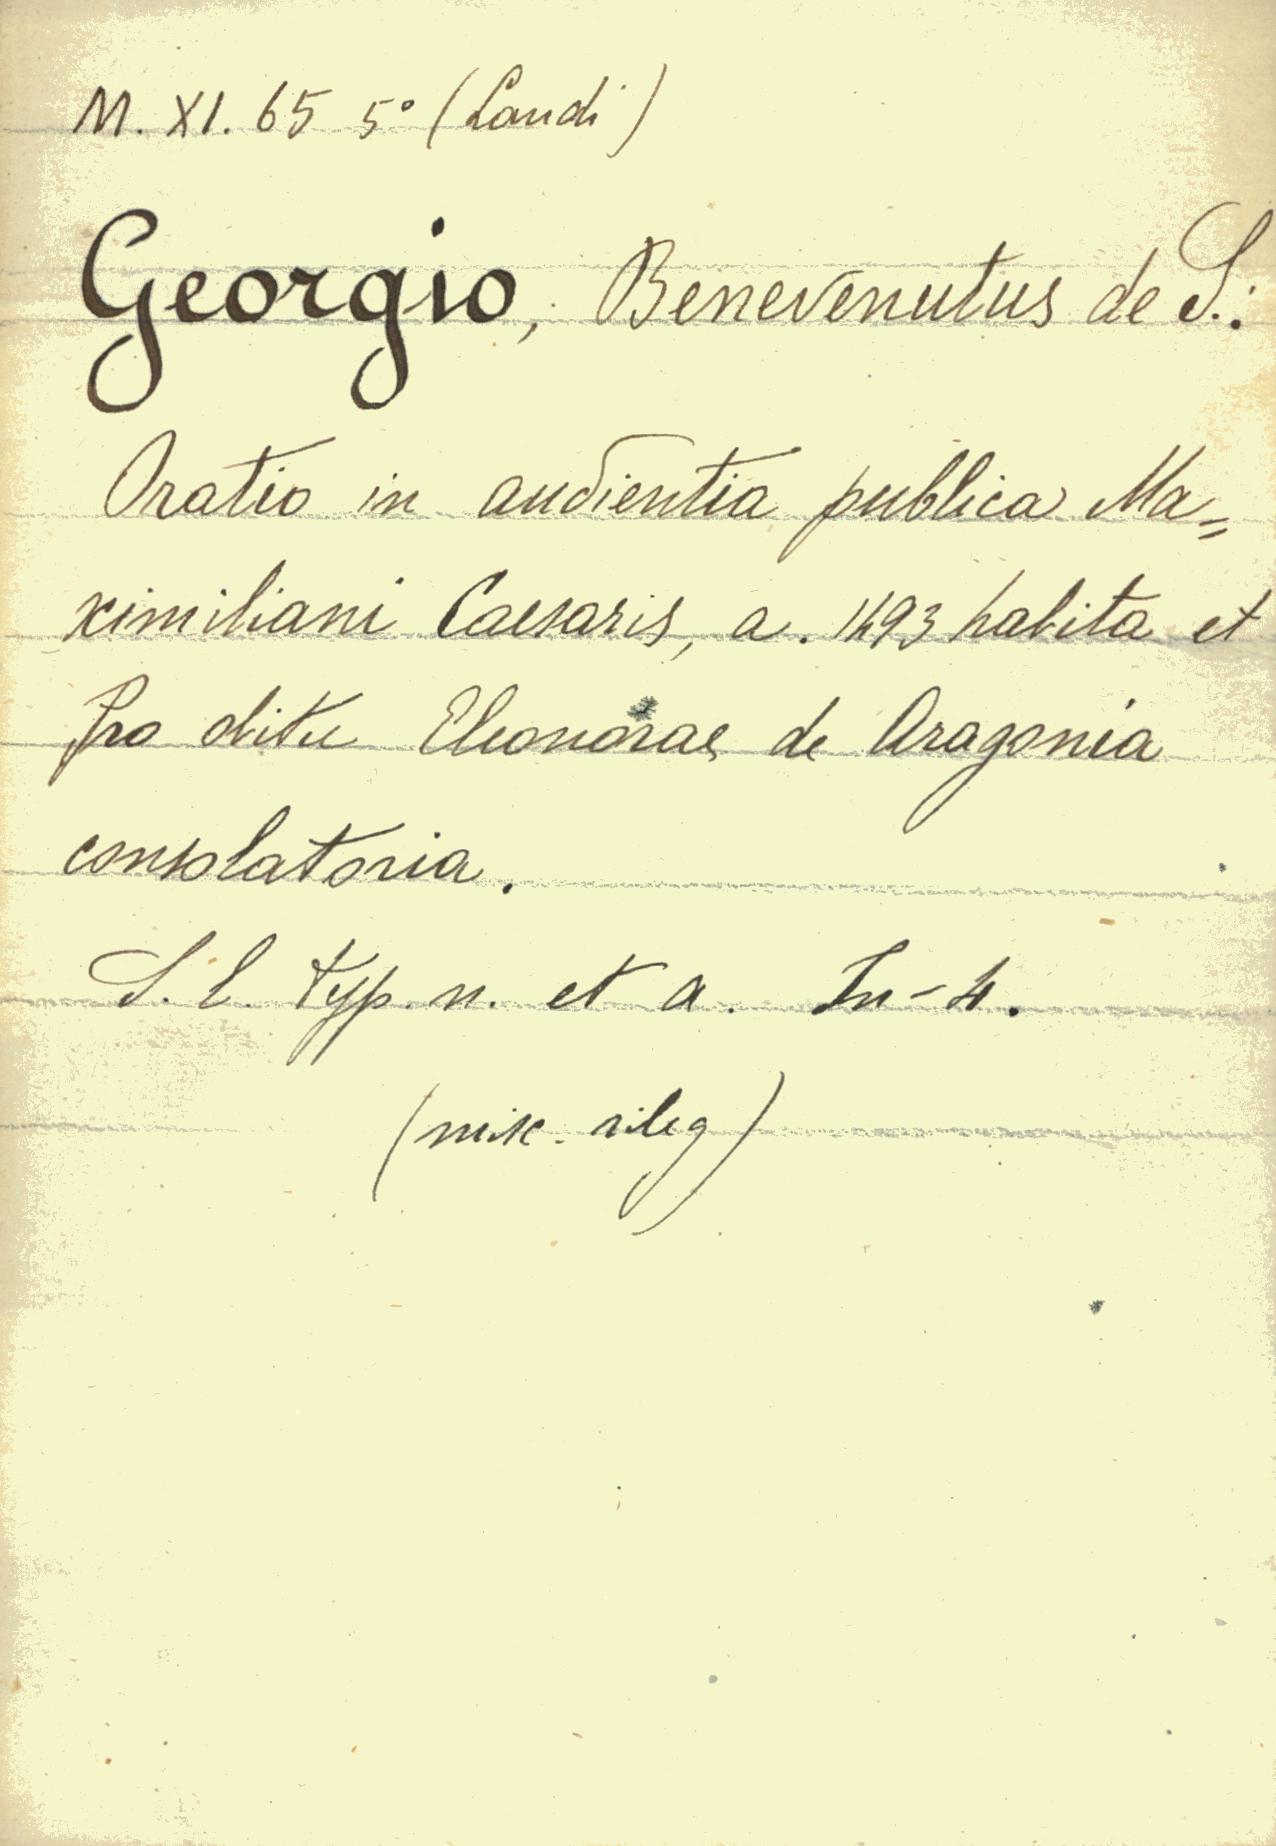 M. XI. 65 5° (Landi)
Georgio, Benevenutus de S.:
Oratio in audientia publica Ma=
ximiliani Caesaris, a. 1493 habita et
Pro obitu Eleonorae de Aragonia
consolatoria.
S. l. typ. n. et a. In-4.
(misc. rileg)